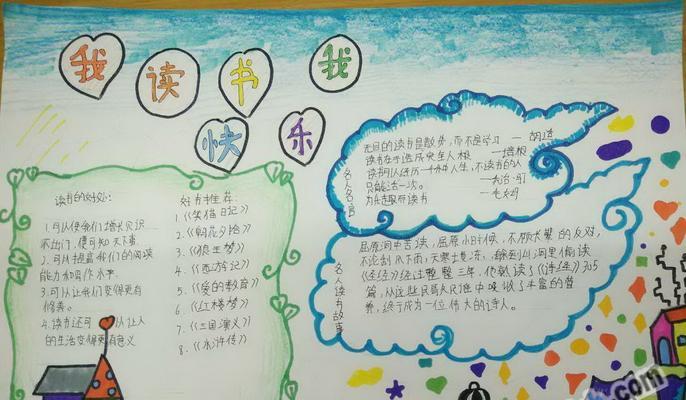 我读书我
快乐
读书的好处:
1.可以使我们增长见识
不出门,便可知天下事.
2.可以提高我们的阅读
能力和写作水平.
3.可以让我们变得更有
修养。
4.读书还可 从让人
的生活变得更有意义
好书推荐:
1.《笑猫日记》
2.《朝花夕拾》
3.《狼王梦》
4.《西游记》
5.《爱的教育》
6.《红楼梦》
7.《三国演义》
8.《水浒传》
名人名言
无目的读书是散步,而不是学习
读书在于造成完全人格 —培根
读书可以经历一千种人生,不读书的人
只能活一次。
为 而读书
名人读书故事
屈原洞中苦读,屈原小时候,不顾长辈的反对,
不论刮风下雨,天寒地冻, 到山洞里偷读
《诗经》经过整整三年,他熟读了《诗经》305
篇,从这些民歌民谣中吸收了丰富的营
养,终于成为一位伟大的诗人。
.com